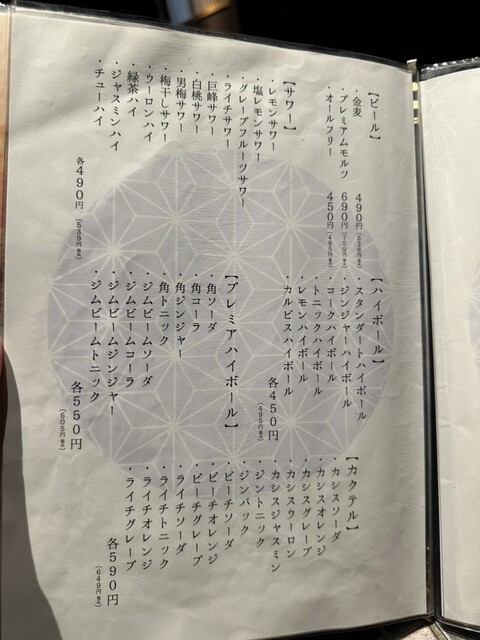 【ビール】
・金麦 490円(539円税込)
・プレミアムモルツ 690円(759円税込)
・オールフリー 450円(495円税込)
【サワー】
・レモンサワー
・塩レモンサワー
・グレープフルーツサワー
・ライチサワー
・巨峰サワー
・白桃サワー
・男梅サワー
・梅干しサワー
・ウーロンハイ
・緑茶ハイ
・ジャスミンハイ
・チューハイ
各490円
(539円税込)
【ハイボール】
・スタンダートハイボール
・ジンジャーハイボール
・コークハイボール
・トニックハイボール
・レモンハイボール
・カルピスハイボール
各450円
(495円税込)
【プレミアハイボール】
・角ソーダ
・角コーラ
・角ジンジャー
・角トニック
・ジムビームソーダ
・ジムビームコーラ
・ジムビームジンジャー
・ジムビームトニック
各550円
(605円税込)
【カクテル】
・カシスソーダ
・カシスオレンジ
・カシスグレープ
・カシスウーロン
・カシスジャスミン
・ジントニック
・ジンバック
・ピーチソーダ
・ピーチオレンジ
・ピーチグレープ
・ライチソーダ
・ライチトニック
・ライチオレンジ
・ライチグレープ
各590円
(649円税込)